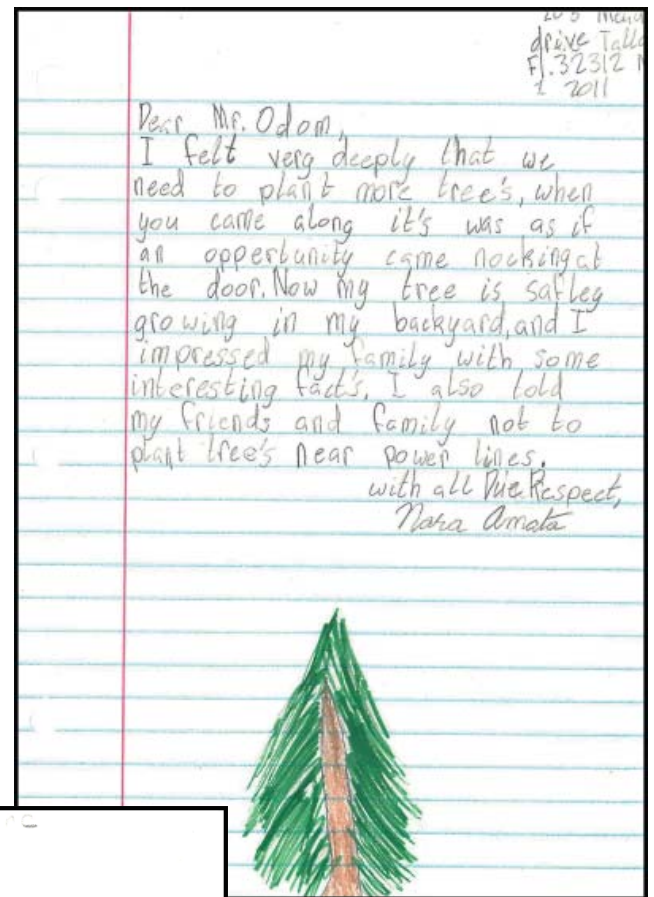 drive
Fl. 32312
1 2011
Dear Mr. Odom,
I felt very deeply that we
need to plant more tree's, when
you came along it's was as if
an oppertunity came nocking at
the door. Now my tree is safley
growing in my backyard, and I
impressed my family with some
interesting fact's. I also told
my friends and family not to
plant tree's near power lines.
with all Due Respect,
Nara Amata